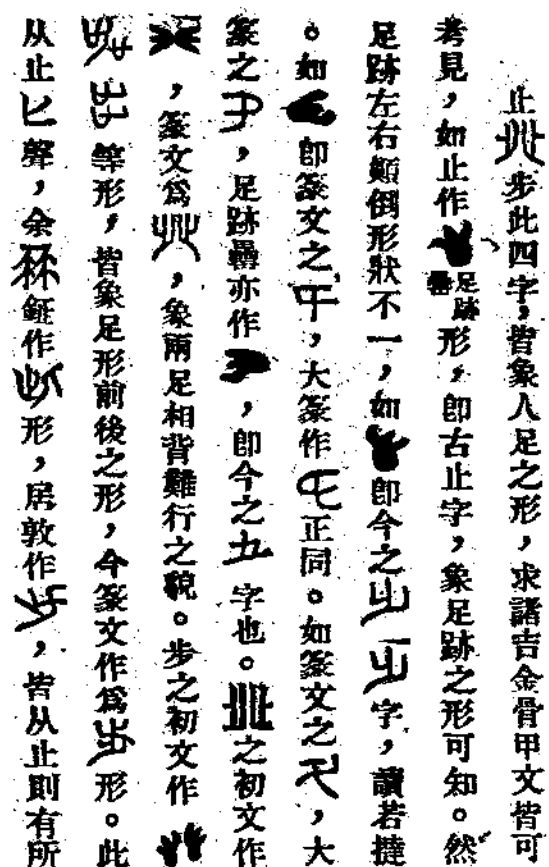 止癶步此四字,皆象人足之形,求諸吉金骨甲文皆可
考見,如止作 足跡罍 形,卽古止字,象足跡之形可知。然
足跡左右顚倒形狀不一,如 卽今之 字,讀若撻
。如 卽篆文之 ,大篆作 正同。如篆文之 ,大
篆之 ,足跡罍亦作 ,卽今之 字也。 之初文作
,篆文爲 ,象兩足相背難行之貌。步之初文作
等形,皆象足形前後之形,今篆文作爲 形。此
从止匕聲,余 鉦作 形,居敦作 ,皆从止則有所